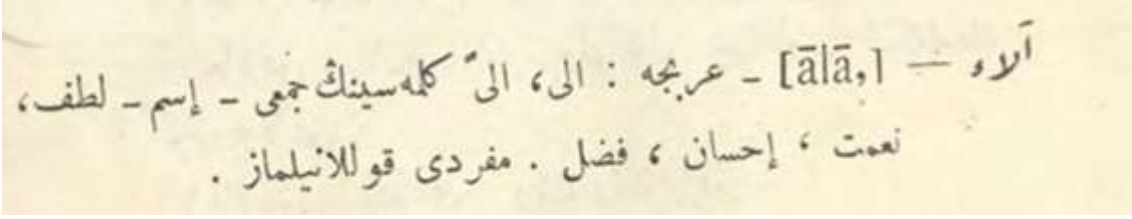 آلاء — [ālā,] ـ عربجه : الى، الىّ كلمه‌سينڭ جمعى ـ إسم ـ لطف،
نعمت ، إحسان ، فضل . مفردى قوللانيلماز .